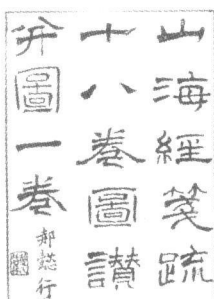 山海經箋疏
十八卷圖讃
并圖一卷
郝懿行